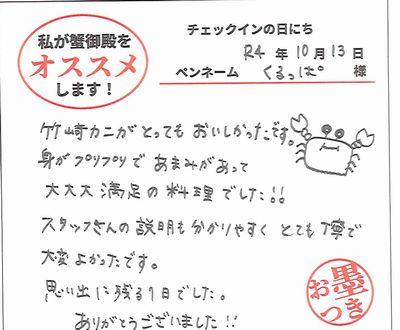 私が蟹御殿を
オススメ
します!
チェックインの日にち
R4 年 10 月 13 日
ペンネーム くるっぱ° 様
竹崎カニがとってもおいしかったです。
身がプリプリで あまみがあって
大大大満足の料理でした!!
スタッフさんの説明も分かりやすく とても丁寧で
大変よかったです。
思い出に残る1日でした。
ありがとうございました!!
お墨
つき